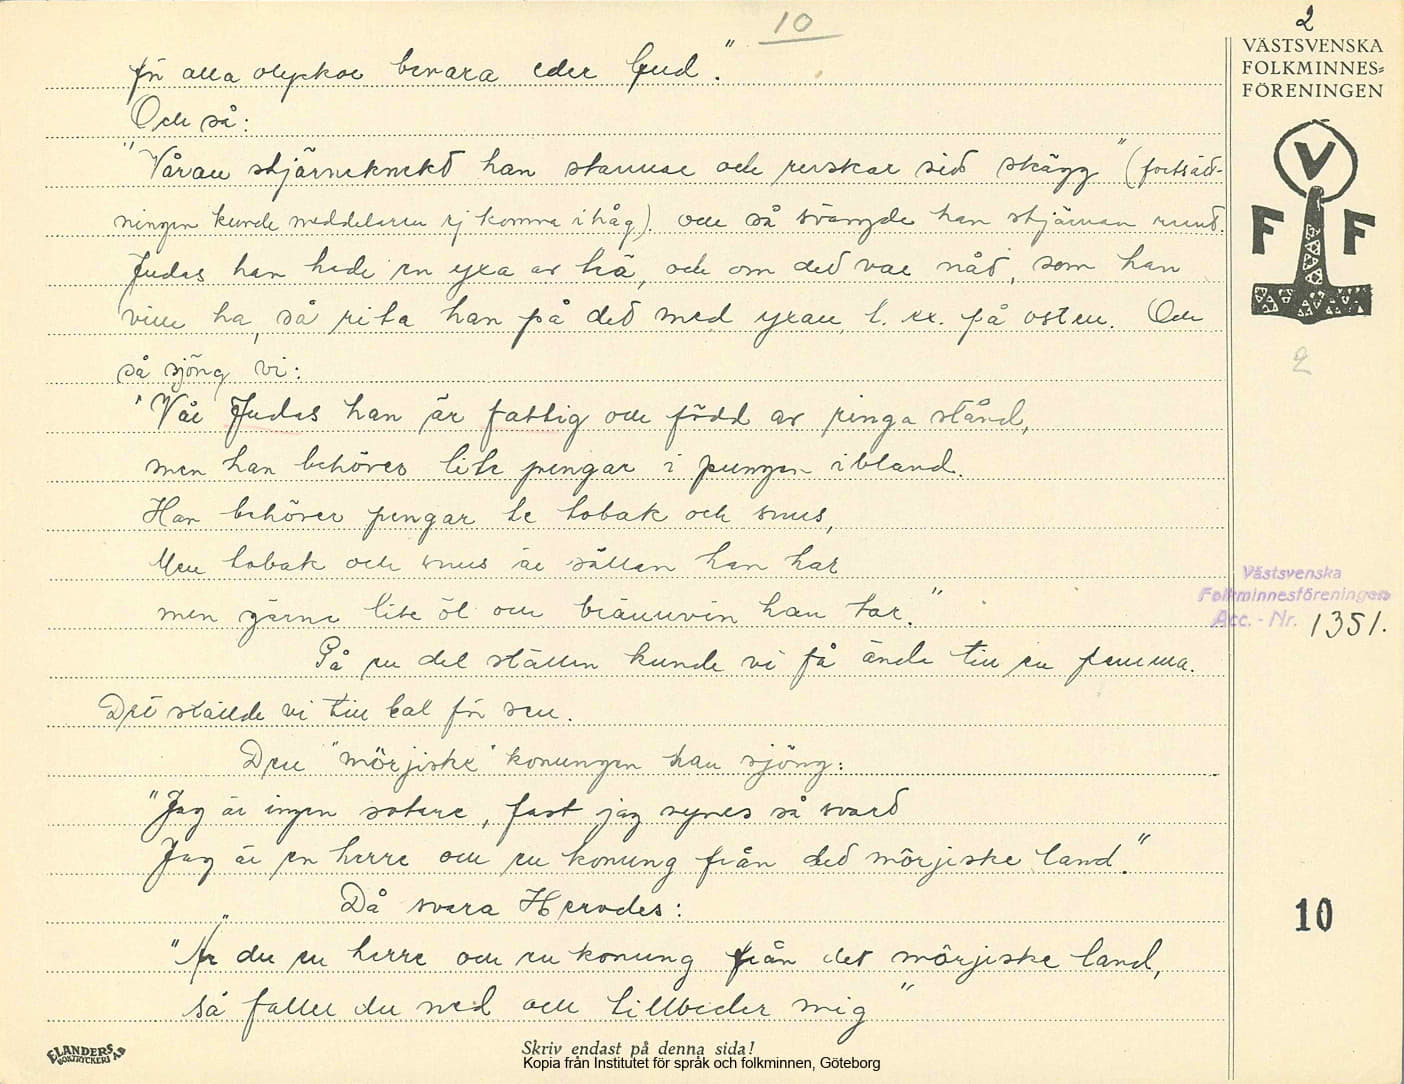 10
2
VÄSTSVENSKA
FOLKMINNES=
FÖRENINGEN
för alla olyckor bevara eder Gud."
Och så:
"Våran stjärneknekt han stannar och ruskar sitt skägg" (fortsätt-
ningen kunde meddelaren ej komma ihåg). och så svängde han stjärnan runt.
Judas han hade en yxa av trä, och om det var nåt, som han
ville ha, så rita han på det med yxan, t. ex. på osten. Och
så sjöng vi:
"Vår Judas han är fattig och född av ringa stånd,
men han behöves lite pengar i pungen ibland.
Han behöver pengar te tobak och snus,
Men tobak och snus är sällan han har
men gärna lite öl och brännvin han tar."
På en del ställen kunde vi få ända till en femma.
Det ställde vi till bal för sen.
Den "mörjiske" konungen han sjöng:
"Jag är ingen sotare, fast jag synes så svart
Jag är en herre och en konung från det mörjiske land."
Då svara Herodes:
"Är du en herre och en konung från det mörjiske land,
så faller du ned och tillbeder mig"
V
F F
2
Västsvenska
Folkminnesföreningen
Acc. - Nr. 1351.
10
ELANDERS
BOKTRYCKERI AB
Skriv endast på denna sida!
Kopia från Institutet för språk och folkminnen, Göteborg